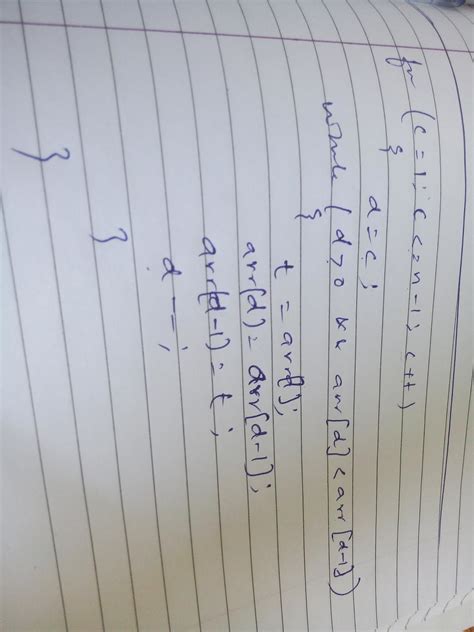 for (c = 1; c <= n-1; c++)
{
d = c;
while ( d > 0 && arr[d] < arr[d-1])
{
t = arr[d];
arr[d] = arr[d-1];
arr[d-1] = t;
d--;
}
}